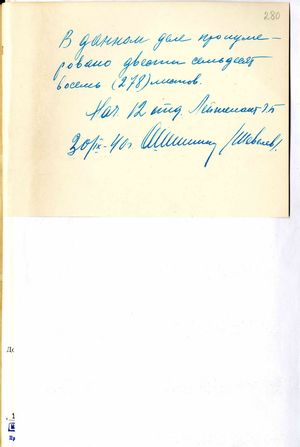 280
В данном деле пронуме-
ровано двести семьдесят
восемь (278) листов.
Нач 12 отд. Лейтенант ГБ
30/IX-40г (Шевелев).